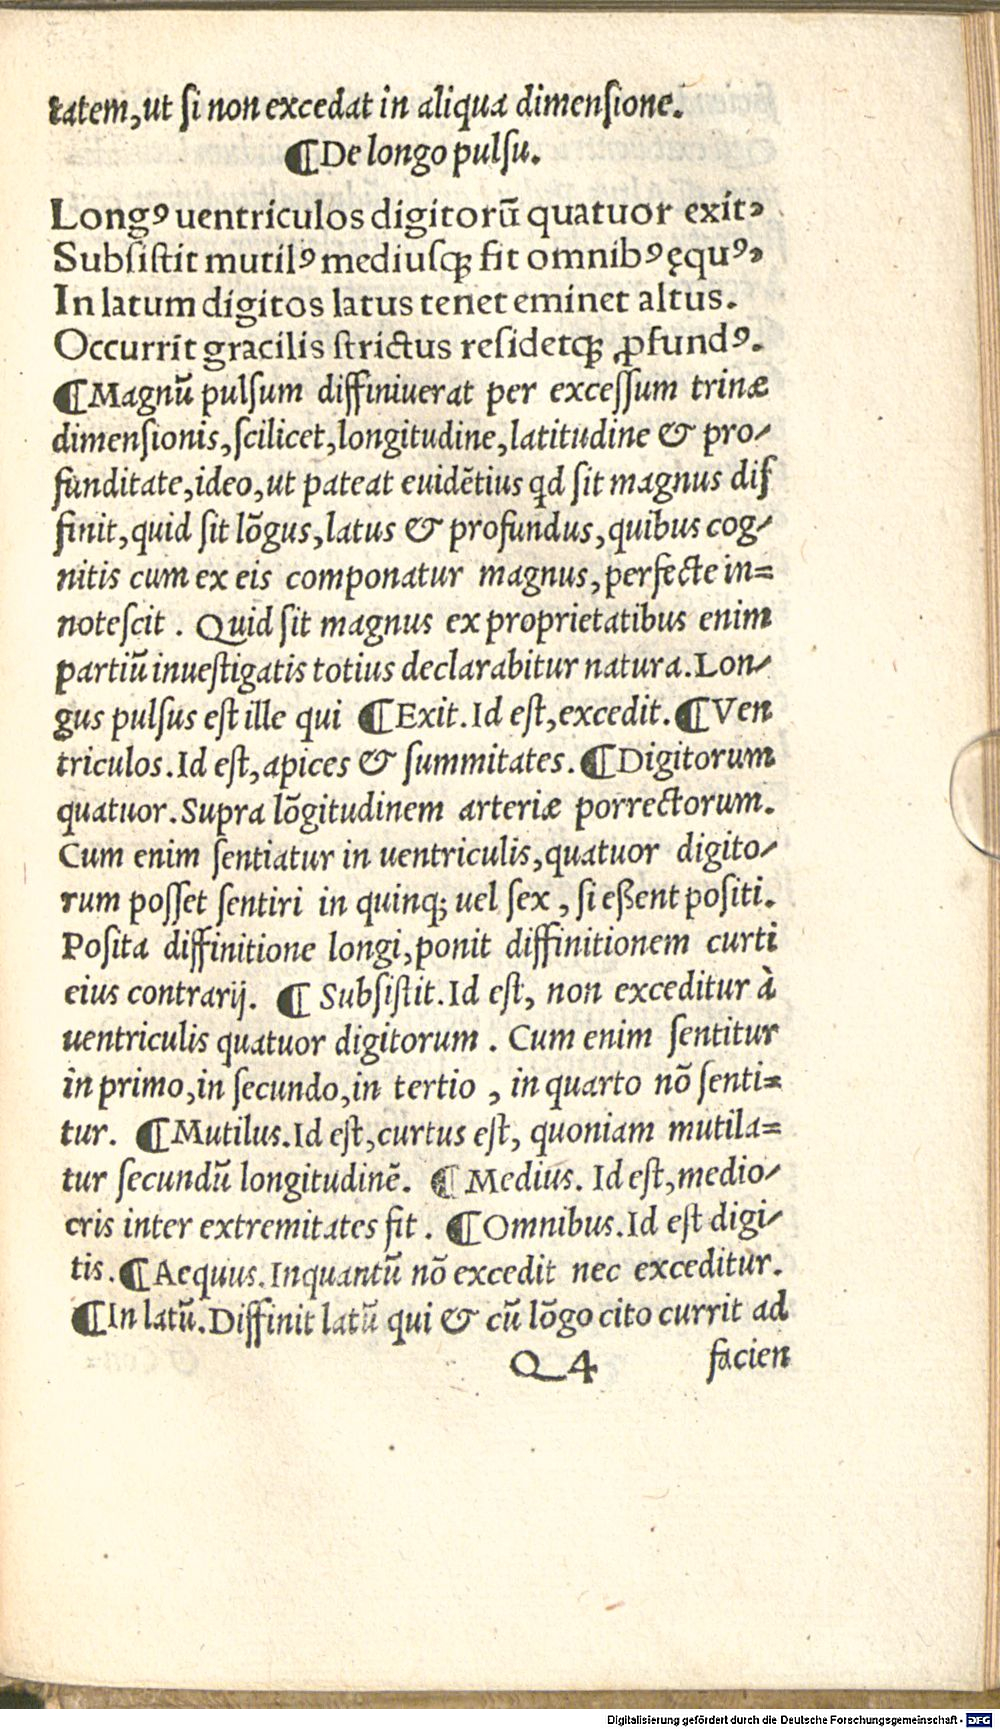 tatem,ut ſi non excedat in aliqua dimenſione.
¶De longo pulſu.
Longꝰ uentriculos digitorũ quatuor exit,
Subſiſtit mutilꝰ mediuſcꝗ fit omnibꝰ ęquꝰ,
In latum digitos latus tenet eminet altus.
Occurrit gracilis ſtrictus reſidetcꝗ ꝓfundꝰ.
¶Magnũ pulſum diffiniuerat per exceſſum trinæ
dimenſionis,ſcilicet,longitudine,latitudine & pro-
funditate,ideo,ut pateat euidẽtius qd ſit magnus dif
finit,quid ſit lõgus,latus & profundus,quibus cog-
nitis cum ex eis componatur magnus,perfecte in=
noteſcit . Quid ſit magnus ex proprietatibus enim
partiũ inueſtigatis totius declarabitur natura.Lon-
gus pulſus eſt ille qui ¶Exit.Id eſt,excedit.¶Ven
triculos.Id eſt,apices & ſummitates.¶Digitorum
quatuor.Supra lõgitudinem arteriæ porrectorum.
Cum enim ſentiatur in uentriculis,quatuor digito-
rum poſſet ſentiri in quinq; uel ſex , ſi eßent poſiti.
Poſita diffinitione longi,ponit diffinitionem curti
eius contrarij. ¶ Subſiſtit.Id eſt, non exceditur à
uentriculis quatuor digitorum . Cum enim ſentitur
in primo,in ſecundo,in tertio , in quarto nõ ſenti=
tur. ¶Mutilus.Id eſt,curtus eſt, quoniam mutila=
tur ſecundũ longitudinẽ. ¶Medius. Id eſt,medio-
cris inter extremitates fit . ¶Omnibus.Id eſt digi-
tis.¶Aequus.Inquantũ nõ excedit nec exceditur.
¶In latũ.Diffinit latũ qui & cũ lõgo cito currit ad
Q 4 facien
Digitalisierung gefördert durch die Deutsche Forschungsgemeinschaft - DFG